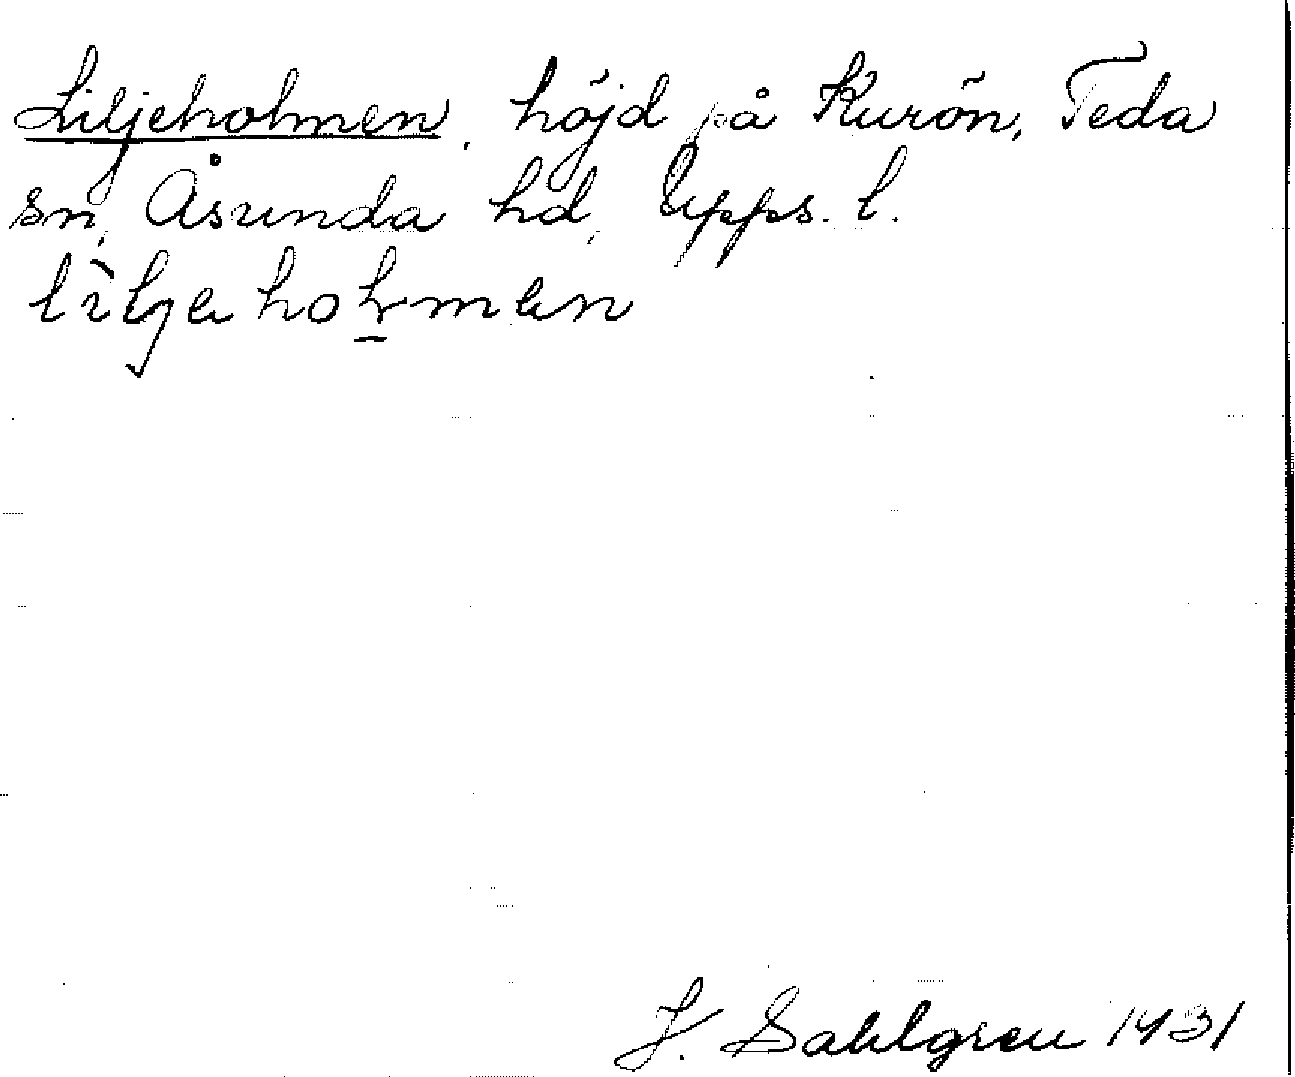 Liljeholmen, höjd på Kurön, Teda
sn, Åsunda hd, Upps. l.
J. Sahlgren 1931